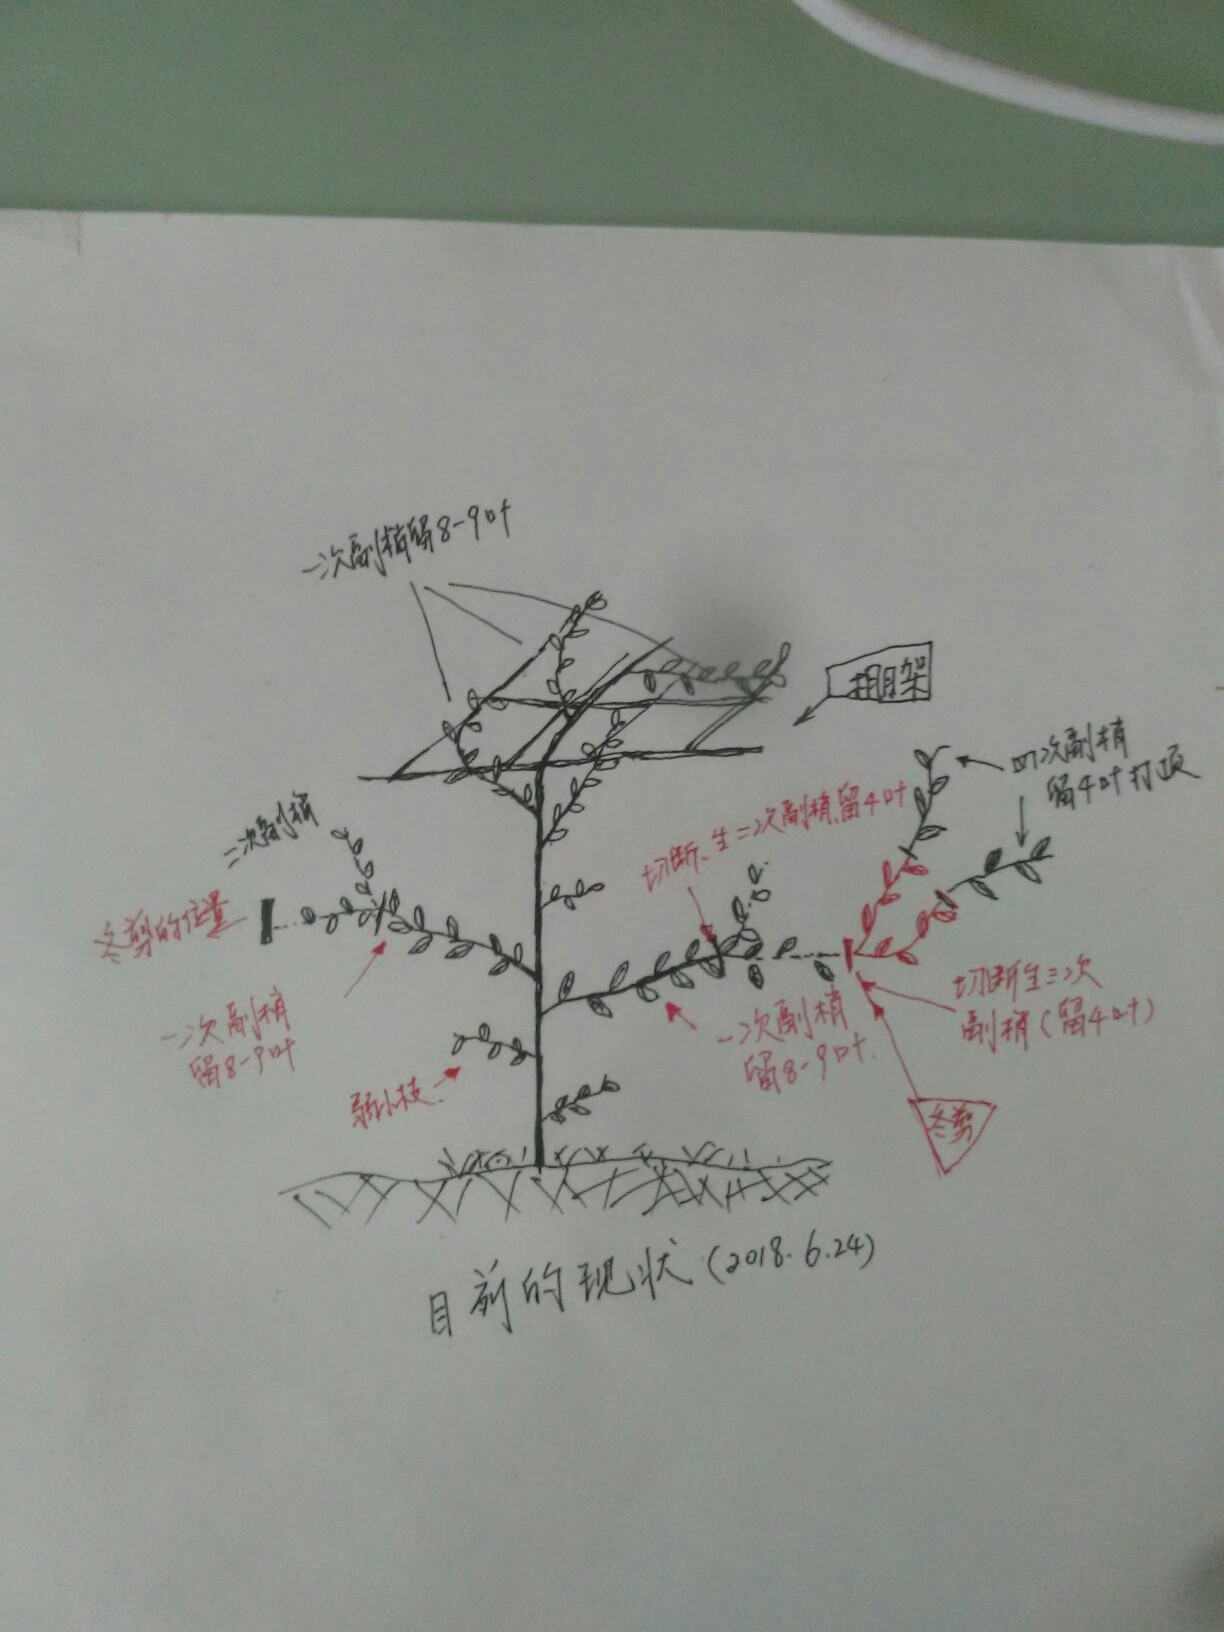 一次副梢留8-9叶
棚架
四次副梢
留4叶打顶
二次副梢
切断、生二次副梢,留4叶
冬剪的位置
一次副梢
留8-9叶
切断生三次
副梢(留4叶)
一次副梢
留8-9叶.
弱小枝.
冬剪
目前的现状(2018.6.24)